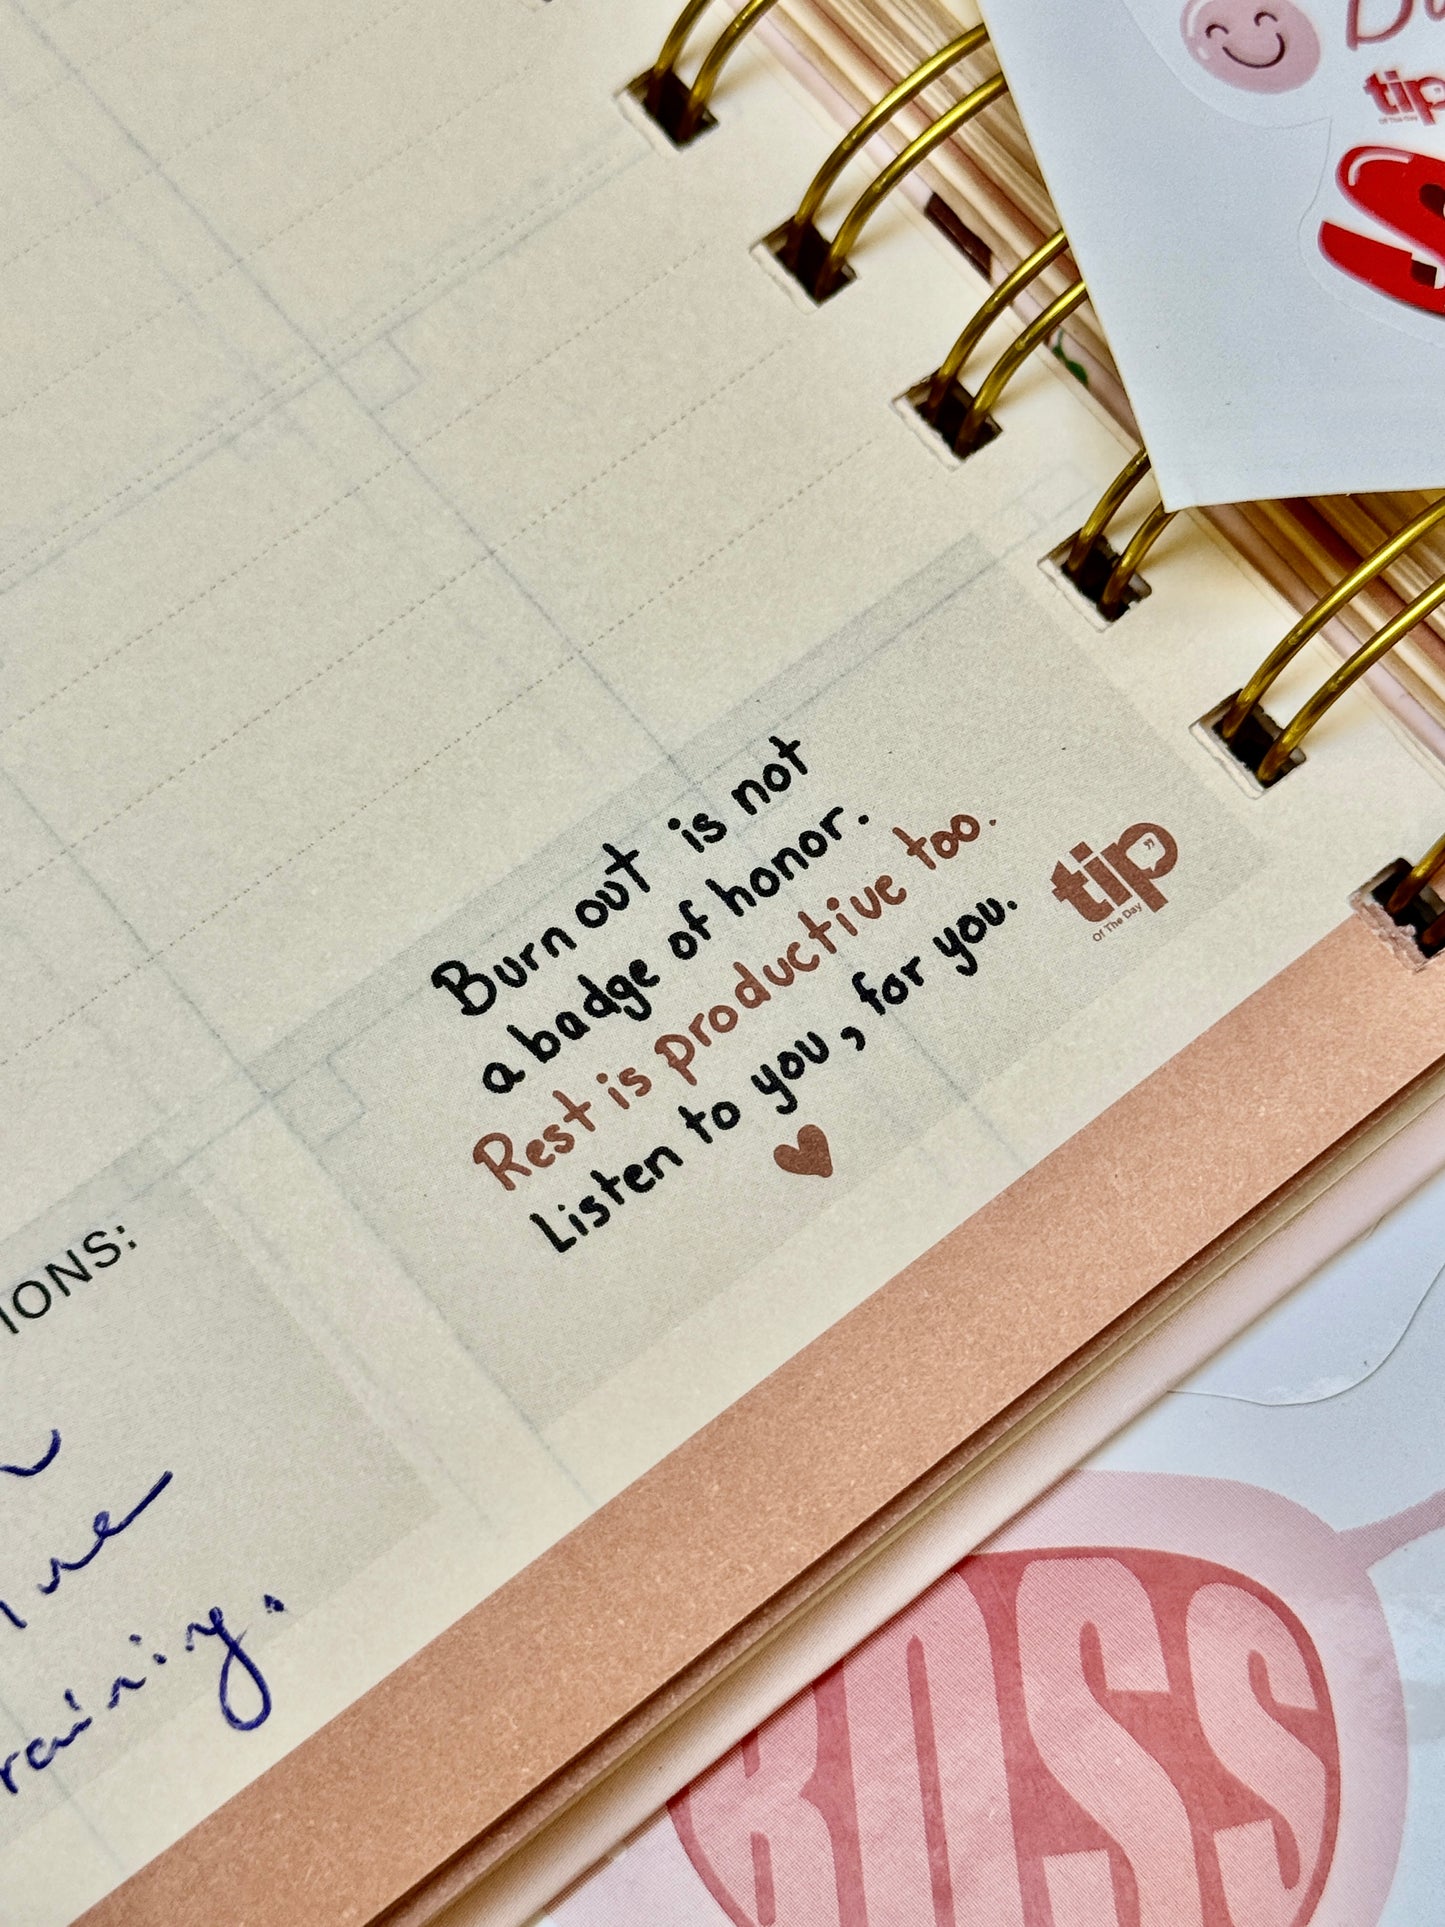 tip
Of The Day
Burn out is not
a badge of honor.
Rest is productive too.
Listen to you, for you.
tip
Of The Day
IONS:
raining.
BOSS